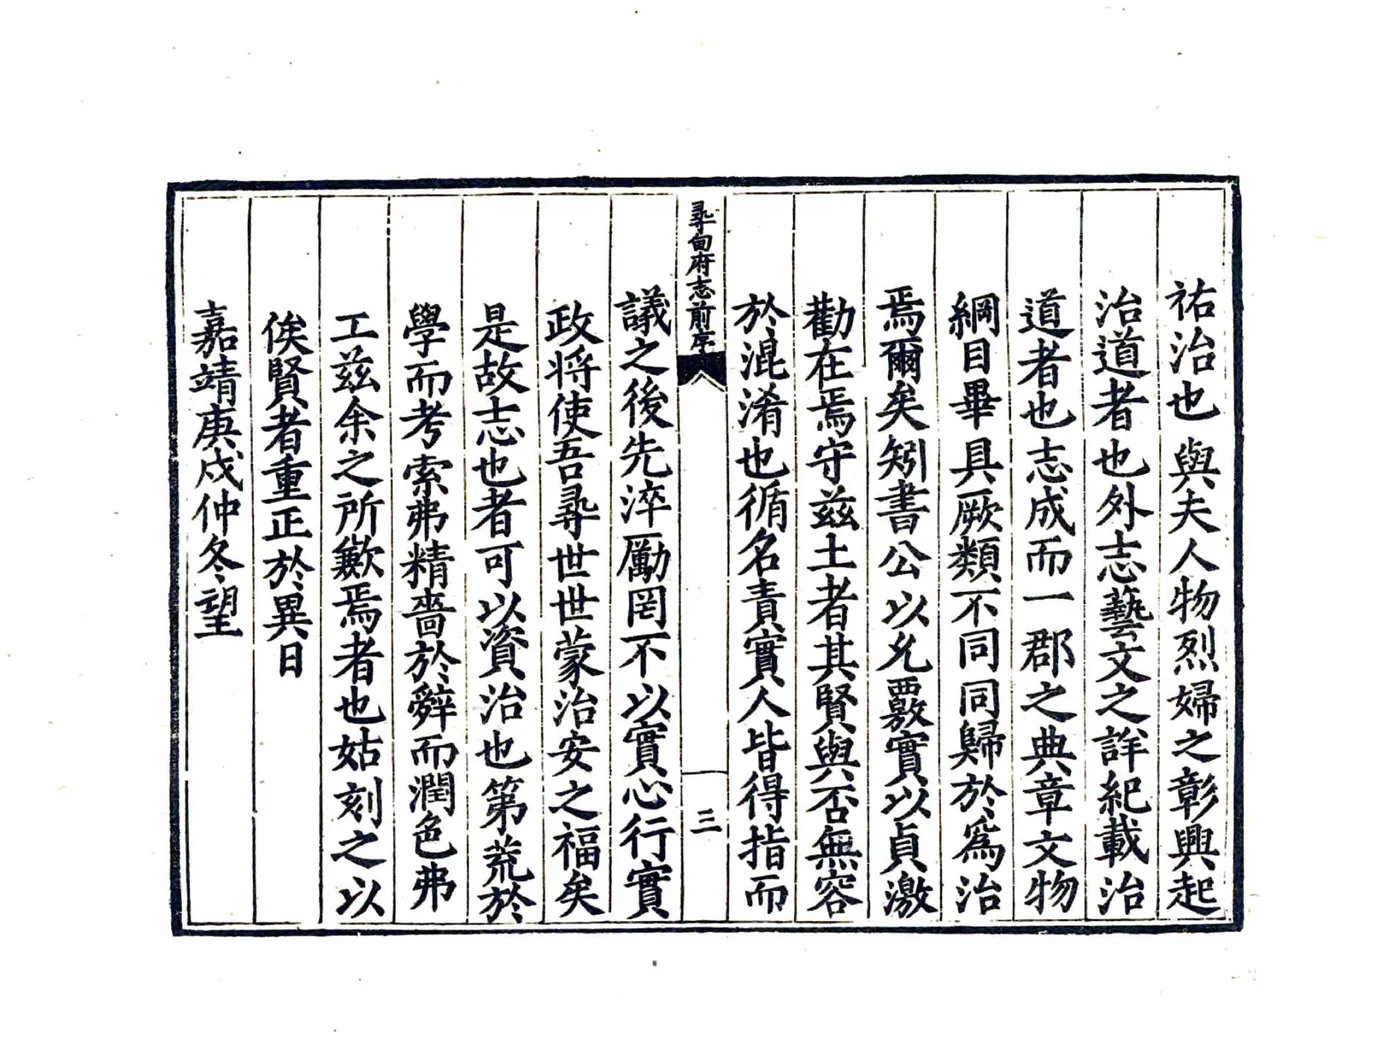 祐治也與夫人物烈婦之彰興起
治道者也外志藝文之詳紀載治
道者也志成而一郡之典章文物
綱目畢具厥類不同同歸於爲治
焉爾矣矧書公以允覈實以貞激
勸在焉守兹土者其賢與否無容
於混淆也循名責實人皆得指而
尋甸府志前序
三
議之後先淬勵罔不以實心行實
政將使吾尋世世蒙治安之福矣
是故志也者可以資治也第荒於
學而考索弗精嗇於辭而潤色弗
工兹余之所歉焉者也姑刻之以
俟賢者重正於異日
嘉靖庚戌仲冬望